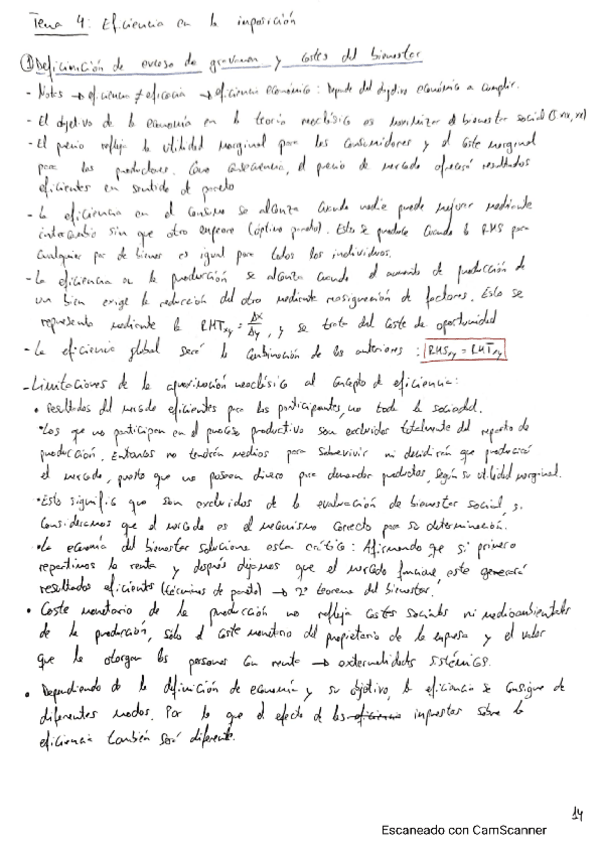 Tema 4: Eficiencia en la imposición
① Definición de exceso de gravamen y costes del bienestar
- Notas → eficiencia ≠ eficacia → eficiencia económica: Depende del objetivo económico a cumplir.
- El objetivo de la economía en la teoría neoclásica es maximizar el bienestar social
- El precio refleja la utilidad marginal para los consumidores y el coste marginal
para los productores. Como consecuencia, el precio de mercado ofrecerá resultados
eficientes en sentido de pareto
- La eficiencia en el consumo se alcanza cuando nadie puede mejorar mediante
intercambio sin que otro empeore (óptimo pareto). Esto se produce cuando la RMS para
cualquier par de bienes es igual para todos los individuos.
- La eficiencia en la producción se alcanza cuando el aumento de producción de
un bien exige la reducción del otro mediante reasignación de factores. Esto se
representa mediante la RMTxy = Δx/Δy, y se trata del coste de oportunidad
- La eficiencia global será la combinación de las anteriores: RMSxy = RMTxy
- Limitaciones de la aproximación neoclásica al concepto de eficiencia:
• resultados del mercado eficientes para los participantes, no toda la sociedad.
• Los que no participan en el proceso productivo son excluidos totalmente del reparto de
producción. Entonces no tendrán medios para sobrevivir ni decidirán que producirá
el mercado, puesto que no poseen dinero para demandar productos, según su utilidad marginal.
• Esto significa que son excluidos de la evaluación de bienestar social, si
consideramos que el mercado es el mecanismo correcto para su determinación.
• La economía del bienestar soluciona esta crítica: Afirmando que si primero
repartimos la renta y después dejamos que el mercado funcione, este generará
resultados eficientes (términos de pareto) → 2º teorema del bienestar.
• Coste monetario de la producción no refleja costes sociales ni medioambientales
de la producción, sólo el coste monetario del propietario de la empresa y el valor
que le otorgan las personas con renta → externalidades sistémicas.
• Dependiendo de la definición de economía y su objetivo, la eficiencia se consigue de
diferentes modos. Por lo que el efecto de los eficiencia impuestos sobre la
eficiencia también será diferente.
14
Escaneado con CamScanner